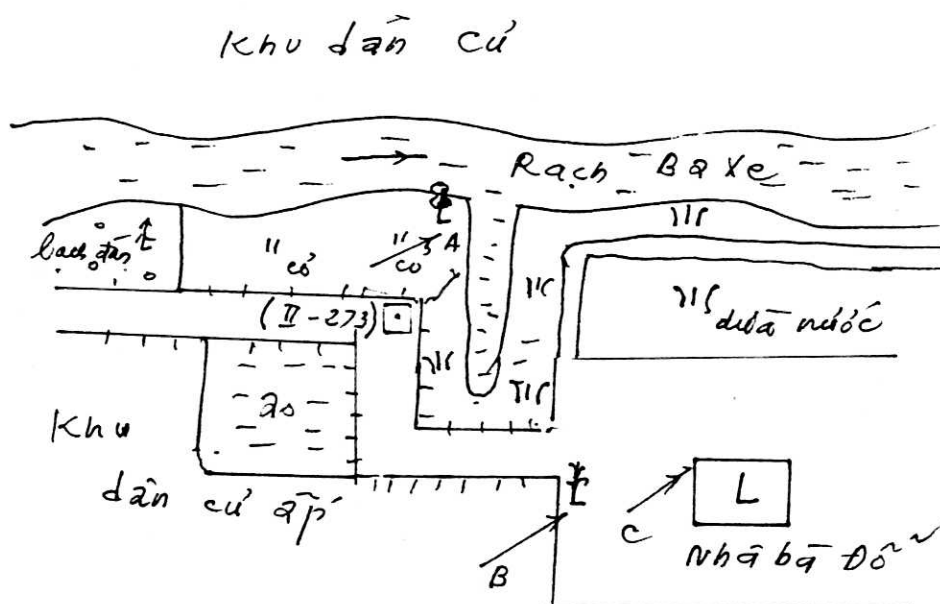 Khu dân cư
Rạch Ba Xe
bạch đàn
cỏ
cỏ
A
(II-273)
dừa nước
ao
Khu
dân cư ấp
B
C
L
Nhà bà Đỗ